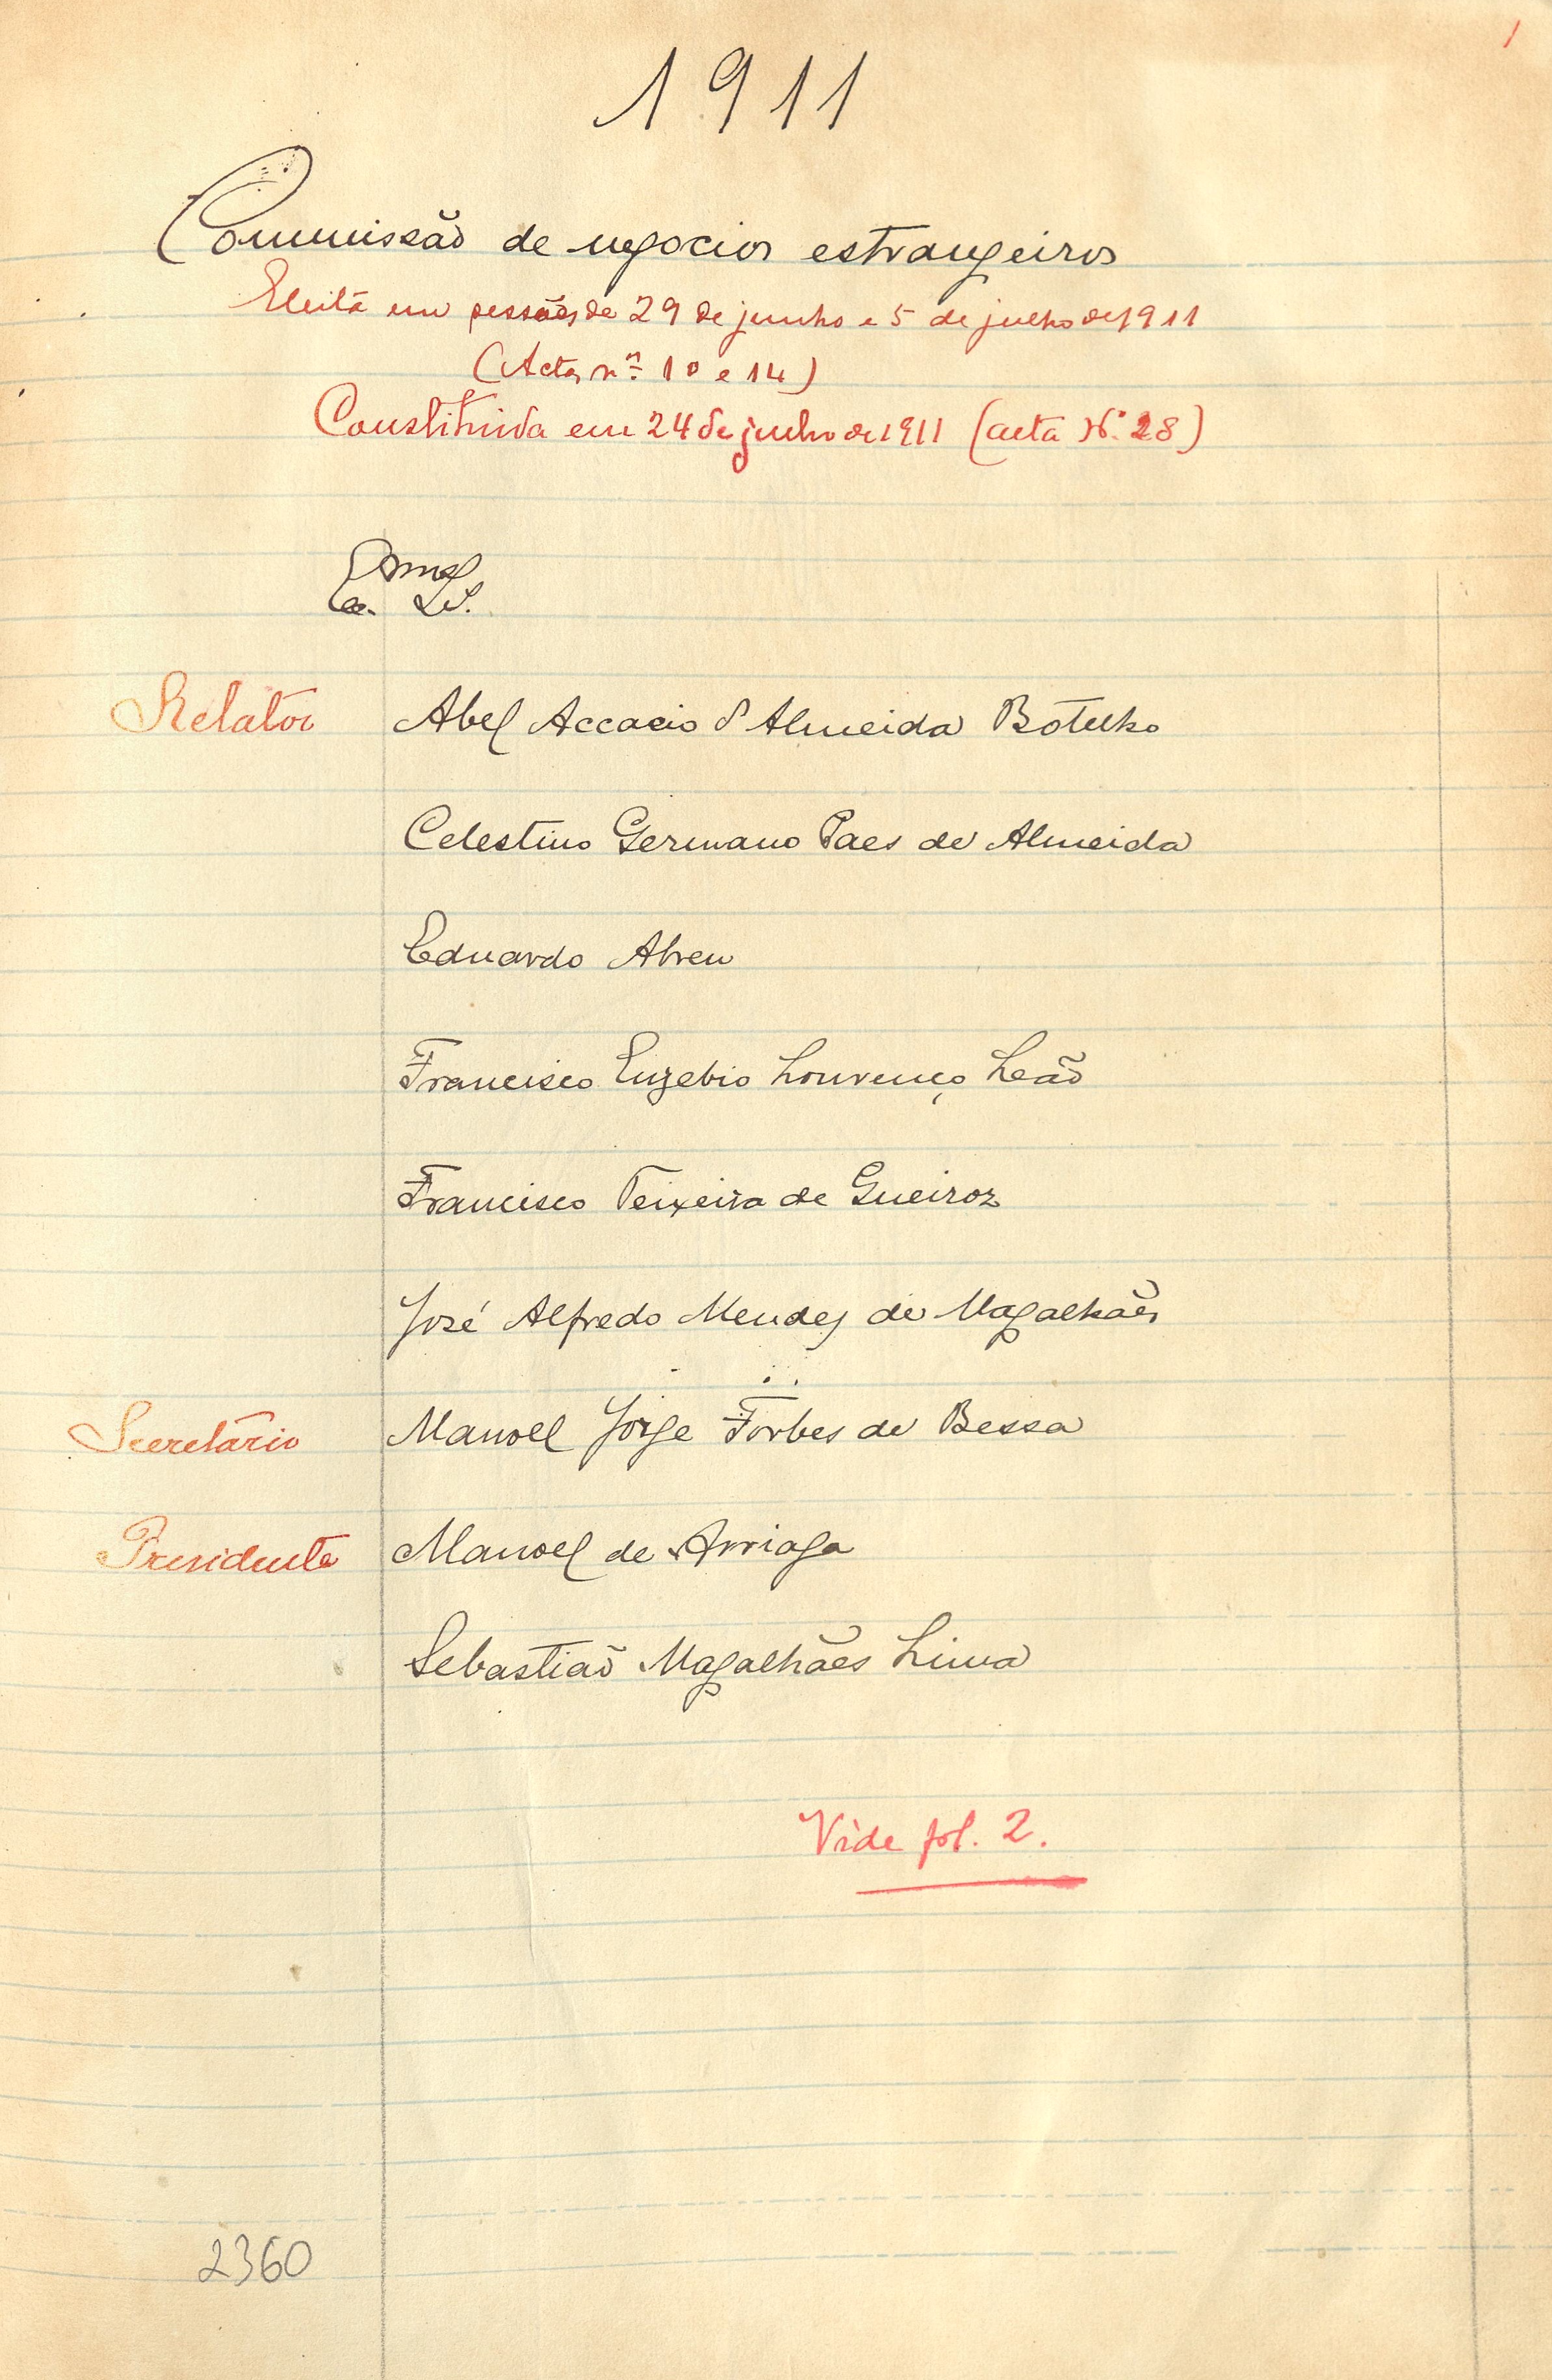 1
1911
Commissão de negocios estrangeiros
Eleita em sessões de 29 de junho e 5 de julho de 1911
(Actas nos 10 e 14)
Constituida em 24 de julho de 1911 (acta Nº 28)
Relator Abel Accacio d'Almeida Botelho
Celestino Germano Paes de Almeida
Eduardo Abreu
Francisco Euzebio Lourenço Leão
Francisco Teixeira de Queiroz
José Alfredo Mendes de Magalhães
Secretário Manoel Jorge Forbes de Bessa
Presidente Manoel de Arriaga
Sebastião Magalhães Lima
Vide fol. 2.
2360